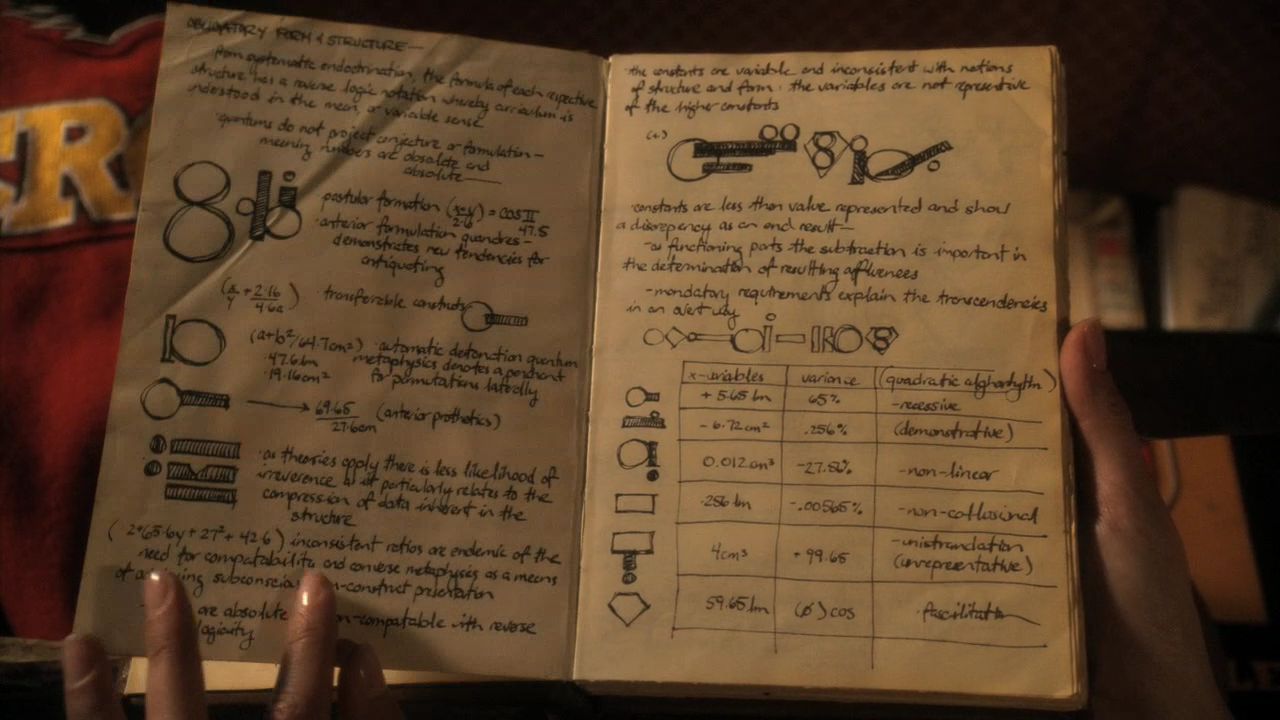 OBLIGATORY FORM & STRUCTURE—
from systematic endoctrination, the formula of each respective
structure has a reverse logic notation whereby curriculum is
understood in the mean or variable sense
quantums do not project conjecture or formulation—
meaning numbers are obsolete and
absolute—
postular formation (x+y/2·6) = cos II/47.5
·anterior formulation quandres—
demonstrates new tendencies for
antiquating
·transferable constructs
(a+b²/64.7cm²) ·automatic detonction quantum
·47.6 lm metaphysics denotes a penchant
·19.16cm² for permutations laterally
69·65/27.6cm (anterior prothetics)
·as theories apply there is less likelihood of
irreverence as it particularly relates to the
compression of data inherent in the
structure
(2+65·6y + 27² + 42·6) inconsistent ratios are endemic of the
need for compatability and converse metaphysics as a means
of subconscious -construct
are absolute -compatable with reverse
logicity
·the constants are variable and inconsistent with notions
of structure and form: the variables are not representive
of the higher constants
(+.)
·constants are less than value represented and show
a discrepency as an end result—
-as functioning parts the subtraction is important in
the determination of resulting
-mandatory requirements explain the transcendencies
in an overt way
x-variables variance (quadratic algharhythm)
+5.65 lm 65% -recessive
-6.72 cm² .256% (demonstrative)
0.012cm³ -27.56% -non-linear
·256 lm -.00565% -non-collusional
4cm³ +99.65 -unistranslation
(unrepresentative)
59.65 lm (6) cos